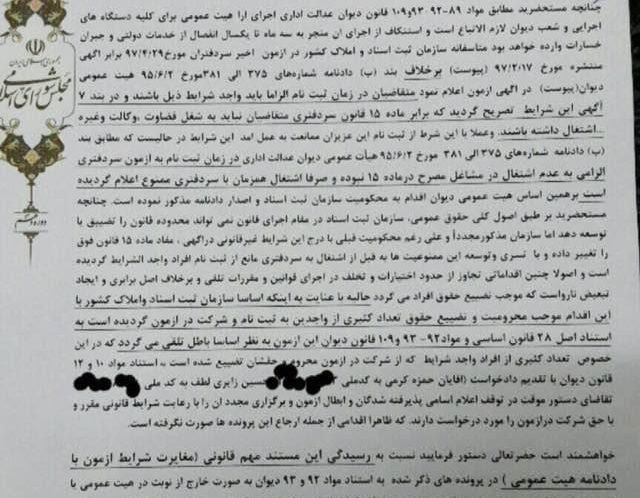 جمهوری اسلامی ایران
مجلس شورای اسلامی
چنانچه مستحضرید مطابق مواد ۸۹-۹۲-۹۳و۱۰۹ قانون دیوان عدالت اداری اجرای آرا هیت عمومی برای کلیه دستگاه های
اجرایی و شعب دیوان لازم الاتباع است و استنکاف از اجرای ان منجر به سه ماه تا یکسال انفصال از خدمات دولتی و جبران
خسارات وارده خواهد بود متاسفانه سازمان ثبت اسناد و املاک کشور در آزمون اخیر سردفتران مورخ۹۷/۴/۲۹ برابر اگهی
منتشره مورخ ۹۷/۲/۱۷ (پیوست) برخلاف بند (ب) دادنامه شمارههای ۳۷۵ الی ۳۸۱مورخ ۹۵/۶/۲ هیت عمومی
دیوان(پیوست) در آگهی ازمون اعلام نمود متقاضیان در زمان ثبت نام الزاما باید واجد شرایط ذیل باشند و در بند ۷
آگهی این شرایط تصریح گردید که برابر ماده ۱۵ قانون سردفتری متقاضیان نباید به شغل قضاوت ،وکالت وغیره
اشتغال داشته باشند. وعملا با این شرط از ثبت نام این عزیزان ممانعت به عمل امد این شرایط در حالیست که مطابق بند
(ب) دادنامه شمارههای ۳۷۵الی ۳۸۱ مورخ ۹۵/۶/۲ هیأت عمومی دیوان عدالت اداری در زمان ثبت نام به ازمون سردفتری
الزامی به عدم اشتغال در مشاغل مصرح درماده ۱۵ نبوده و صرفا اشتغال همزمان با سردفتری ممنوع اعلام گردیده
است برهمین اساس هیت عمومی دیوان اقدام به محکومیت سازمان ثبت اسناد و اصدار دادنامه مذکور نموده است. چنانچه
مستحضرید بر طبق اصول کلی حقوق عمومی، سازمان ثبت اسناد در مقام اجرای قانون نمی تواند محدوده قانون را تضییق یا
توسعه دهد اما سازمان مذکورمجدداً و علی رغم محکومیت قبلی با درج این شرایط غیرقانونی دراگهی ، مفاد ماده ۱۵ قانون فوق
را تغییر داده و با تسری وتوسعه این ممنوعیت ها به قبل از اشتغال به سردفتری مانع از ثبت نام افراد واجد الشرایط گردیده
است و اصولا چنین اقداماتی تجاوز از حدود اختیارات و تخلف در اجرای قوانین و مقررات تلقی و برخلاف اصل برابری و ایجاد
تبعیض نارواست که موجب تضییع حقوق افراد می گردد حالیه با عنایت به اینکه اساسا سازمان ثبت اسناد واملاک کشور با
این اقدام موجب محرومیت و تضییع حقوق تعداد کثیری از واجدین به ثبت نام و شرکت در ازمون گردیده است به
استناد اصل ۲۸ قانون اساسی و مواد۹۲- ۹۳ و۱۰۹ قانون دیوان این ازمون به نظر اساسا باطل تلقی می گردد که در این
خصوص تعداد کثیری از افراد واجد شرایط که از شرکت در ازمون محروم و حقشان تضییع شده است به استناد مواد ۱۰ و ۱۲
قانون دیوان با تقدیم دادخواست (اقایان حمزه کرمی به کدملی حسین زایری لطف به کد ملی
تقاضای دستور موقت در توقف اعلام اسامی پذیرفته شدگان و ابطال ازمون و برگزاری مجددان را با رعایت شرایط قانونی مقرر و
با حق شرکت درازمون را مورد درخواست دارند. که ظاهرا اقدامی از جمله ارجاع این پرونده ها صورت نگرفته است.
خواهشمند است حضرتعالی دستور فرمایید نسبت به رسیدگی این مستند مهم قانونی (مغایرت شرایط ازمون با
دادنامه هیت عمومی ) در پرونده های ذکر شده به استناد مواد ۹۲ و ۹۳ دیوان به صورت خارج از نوبت در هیت عمومی با